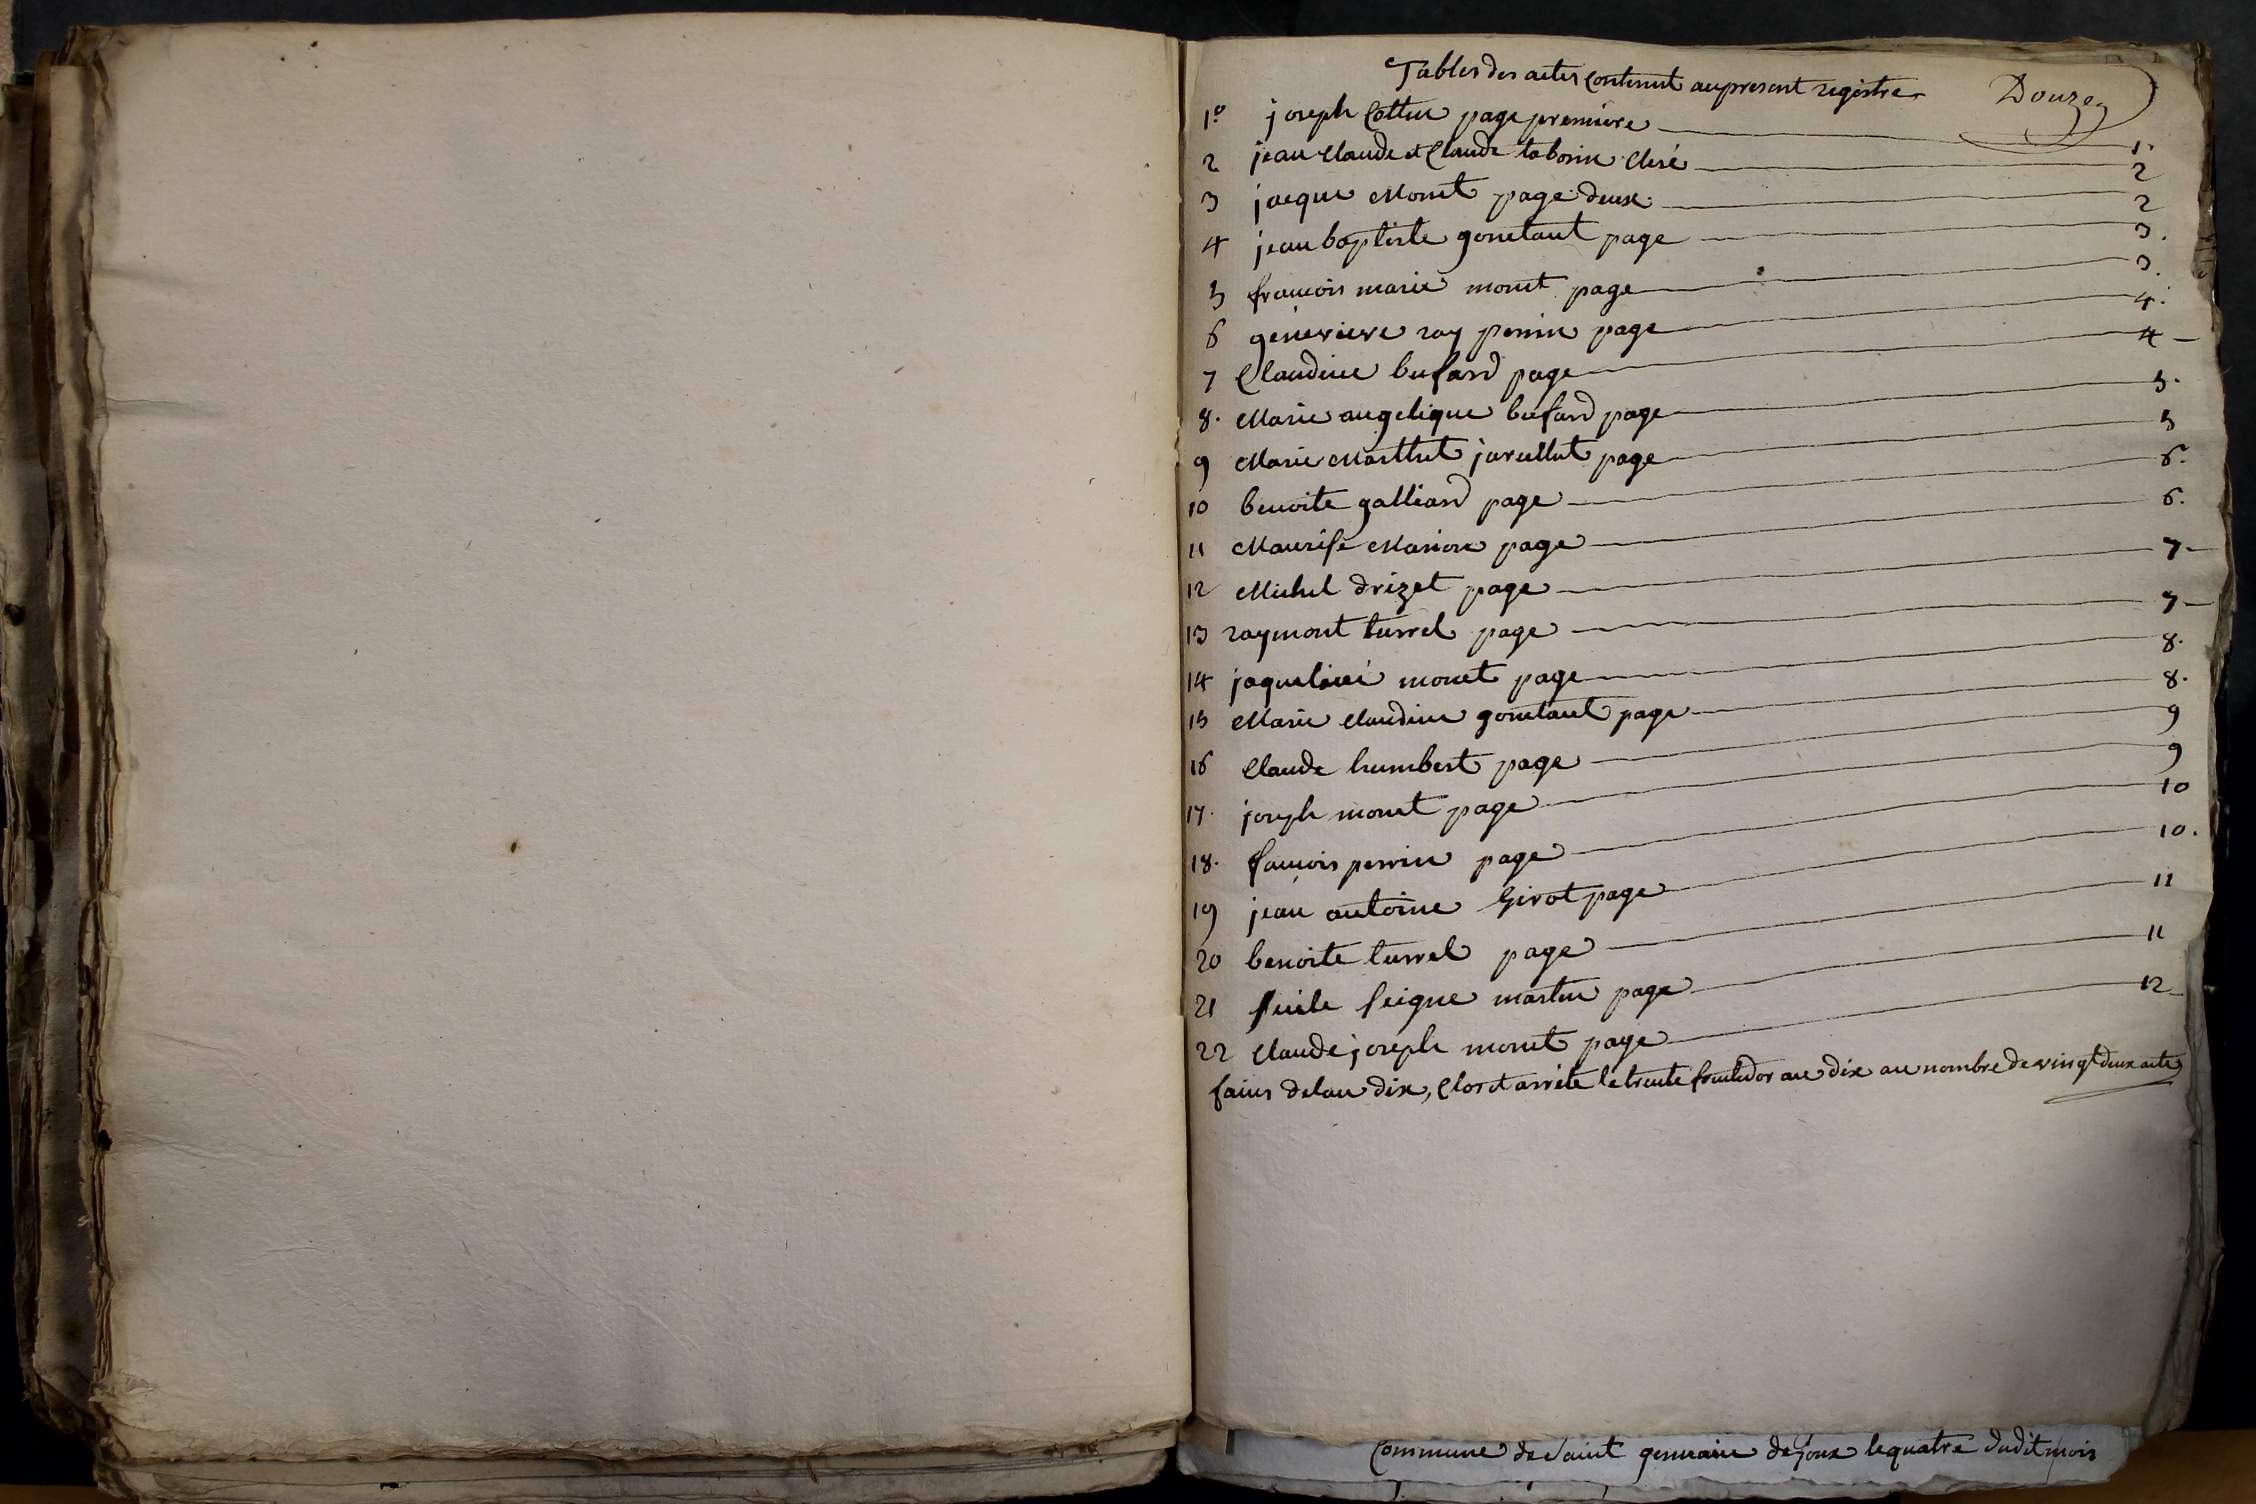 Tables des actes contenut au present registre Douze
1° joseph Cottin page premiere 1.
2 jean Claude et Claude taborin 2
3 jacque Monet page deux 2
4 jean baptiste gonetant page 3.
5 francois marie monet page 3.
6 genevieve ray perrin page 4.
7 Claudine bufard page 4
8. Marie angelique bufard page 5.
9 Marie Marthet javellot page 5
10 benoite galliard page 6.
11 Maurise Marion page 6.
12 Michel drizet page 7
13 raymont turrel page 7
14 jaqueline monet page 8.
15 Marie Claudine gonetant page 8.
16 Claude humbert page 9
17. joseph monet page 9
18. fancois perrin page 10
19 jean antoine Girot page 10.
20 benoite turrel page 11
21 seigne martin page 11
22 Claude joseph monet page 12
faius de lan dix, Clos et arrete le trente fructidor an dix au nombre de vingt deux acte
Commune de Saint germain de joux le quatre dudit mois